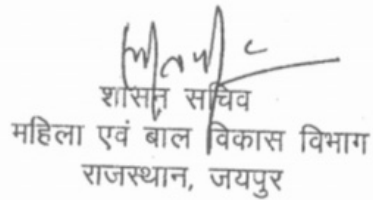 शासन सचिव
महिला एवं बाल विकास विभाग
राजस्थान, जयपुर